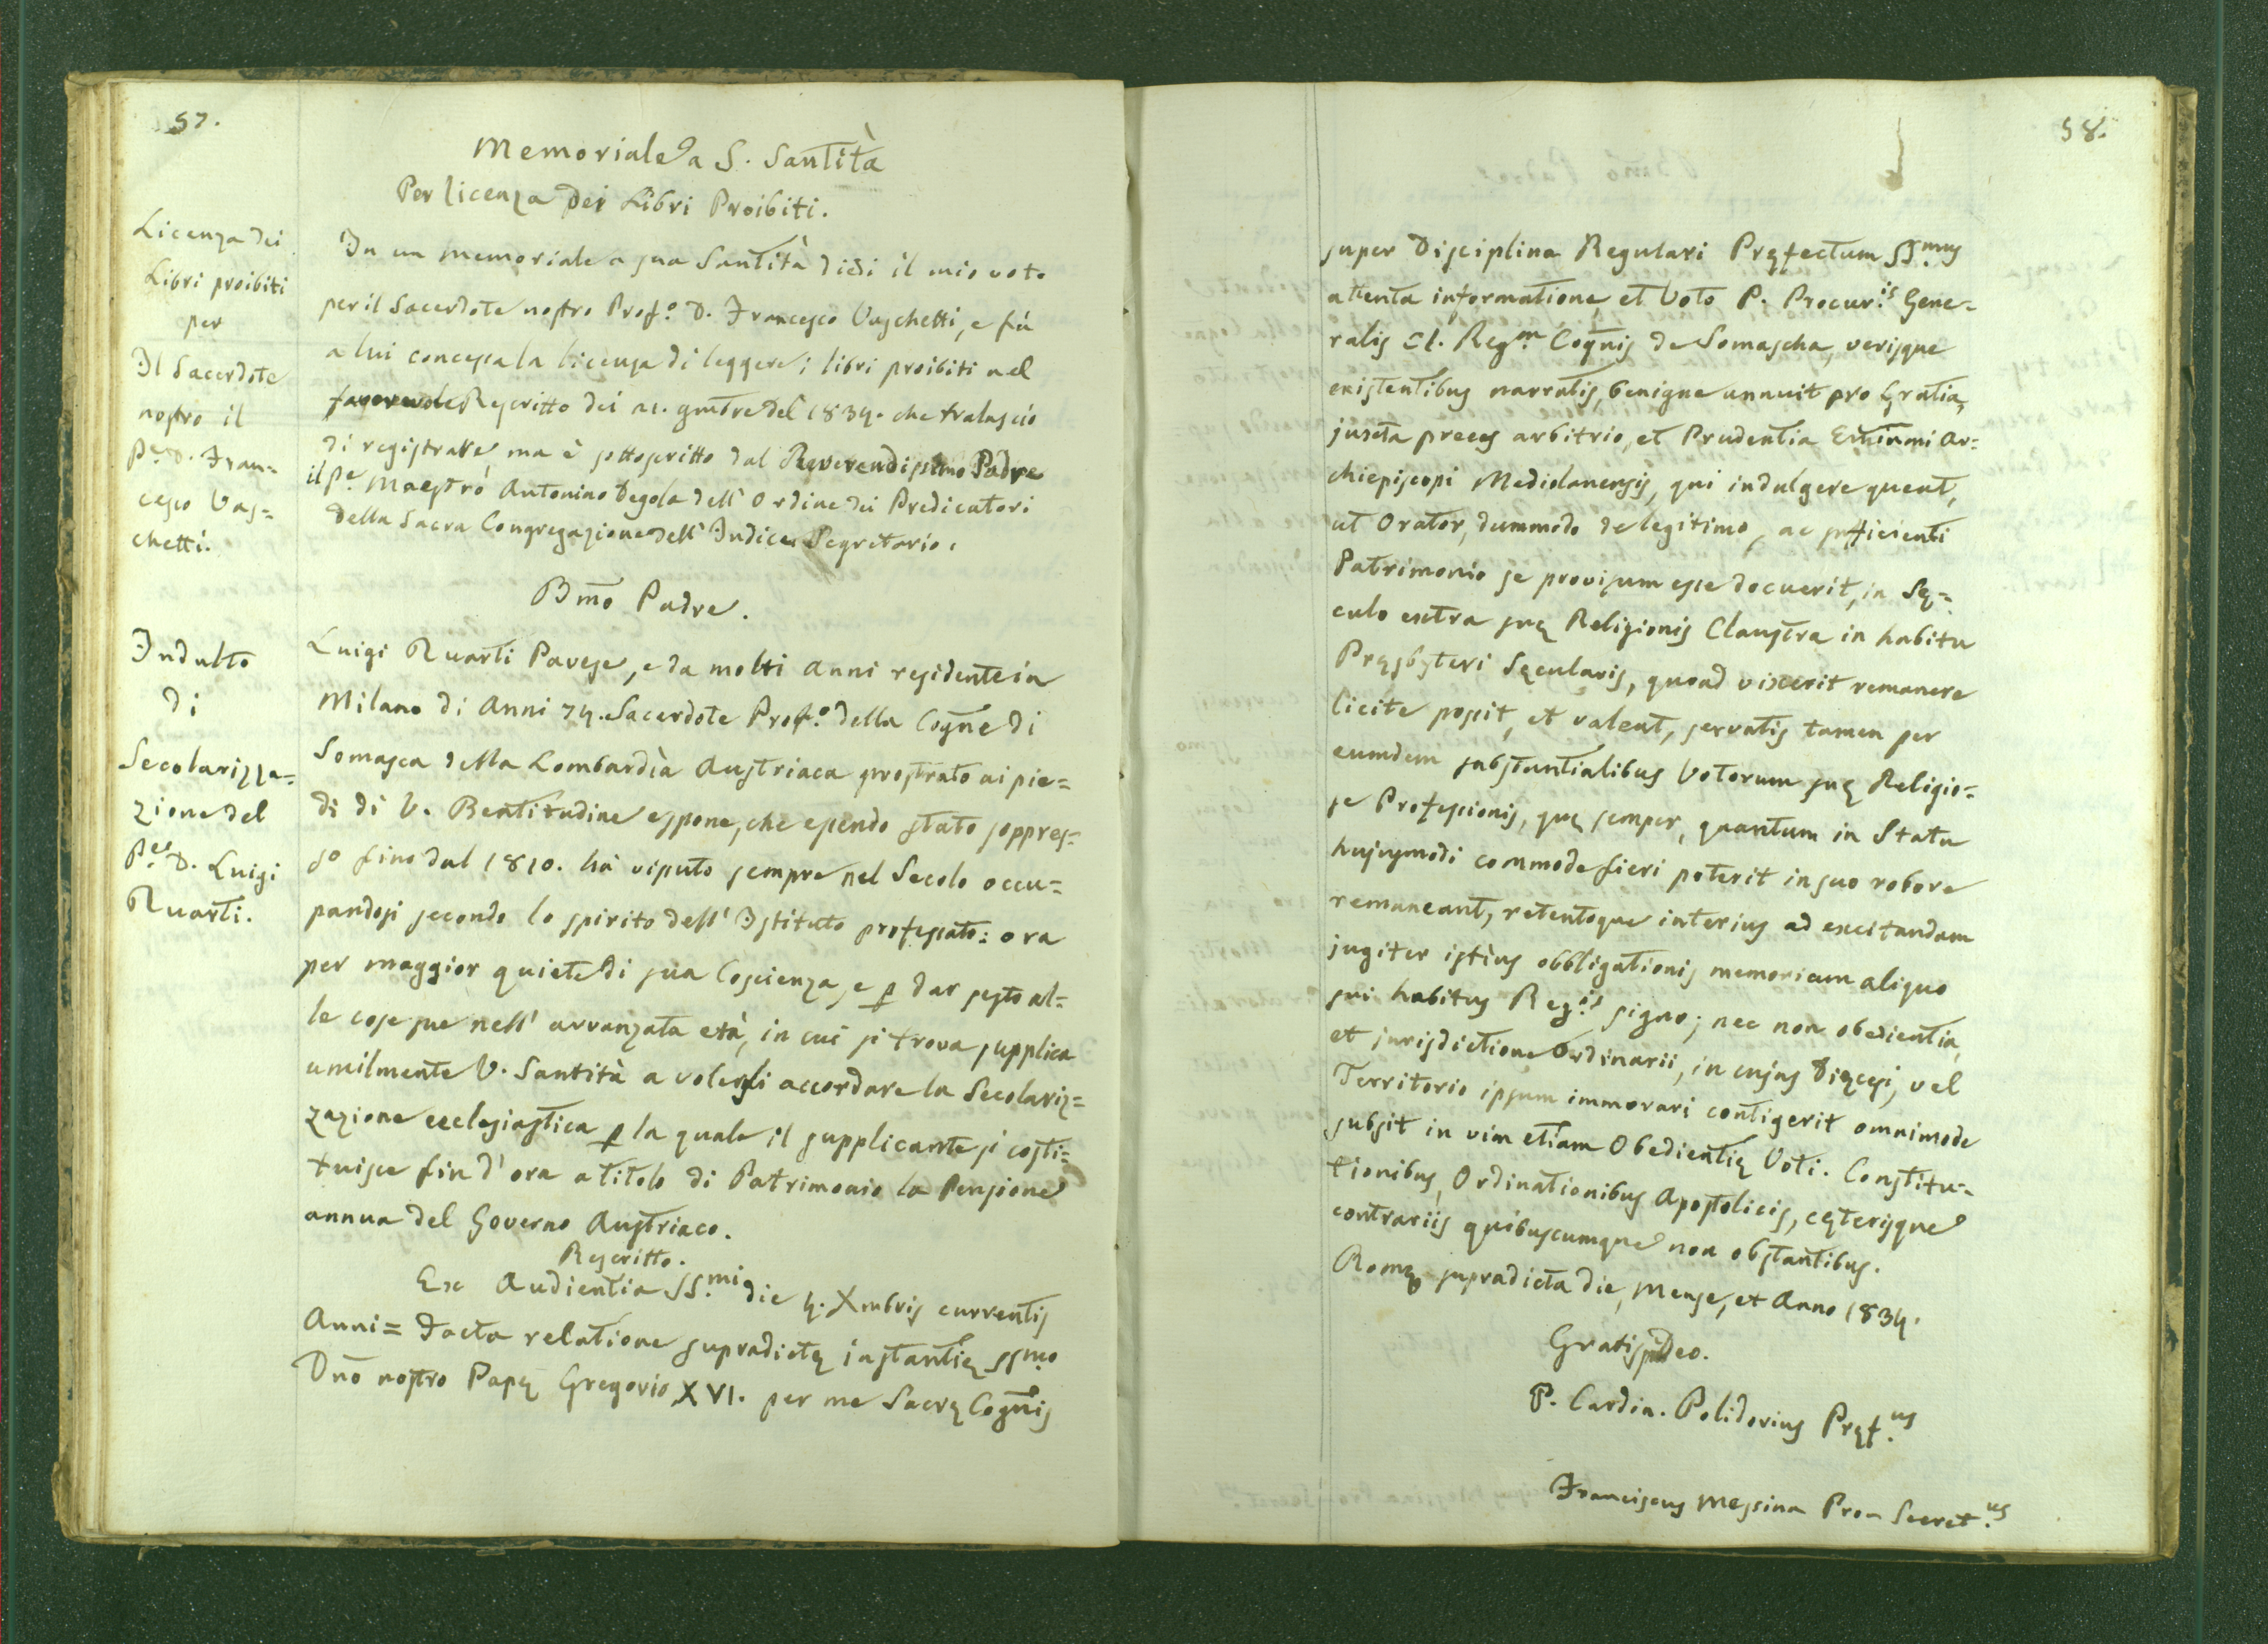 57.
Memoriale a S. Santità
Per licenza dei Libri Proibiti.
Licenza dei
Libri proibiti
per
Il Sacerdote
nostro il
P.e D. Fran=
cesco Vas=
chetti.
In un memoriale a sua Santità diedi il mio voto
per il Sacerdote nostro Prof.o D. Francesco Vaschetti, e fù
a lui concessa la licenza di leggere i libri proibiti nel
favorevole Rescritto dei 21. 9mbre del 1834. che tralascio
di registrare ma è sottoscritto dal Reverendissimo Padre
il P.e Maestro Antonino Degola dell' Ordine dei Predicatori
della Sacra Congregazione dell' Indice Segretario.
Bm̄o Padre.
Indulto
di
Secolarizza=
zione del
P.e D. Luigi
Ruarti.
Luigi Ruarti Pavese, e da molti anni residente in
Milano di Anni 74. Sacerdote Prof.o della Cogn̄e di
Somasca della Lombardìa Austriaca prostrato ai pie=
di di V. Beatitudine espone, che essendo stato soppres=
so fino dal 1810. hà visuto sempre nel Secolo occu=
pandosi secondo lo spirito dell' Istituto professato: ora
per maggior quiete di sua Coscienza, e p dar sesto al=
le cose sue nell' avvanzata età, in cui si trova supplica
umilmente V. Santità a volergli accordare la Secolariz=
zazione ecclesiastica p la quale il supplicante si costi=
tuisce fin d' ora a titolo di Patrimonio la Pensione
annua del Governo Austriaco.
Rescritto.
Ex Audientia SS.mi die 4. Xmbris currentis
Anni = Facta relatione supradictę instantię SSmo
Dn̄o nostro Papę Gregorio XVI. per me Sacrę Cogn̄is
58.
super Disciplina Regulari Pręfectum SS.mus
attenta informatione, et Voto P. Procur.is Gene=
ralis Cl. Reg.m Cogn̄is de Somascha, verisque
existentibus narratis, benigne annuit pro Gratia,
juxta preces arbitrio, et Prudentia Emin̄mi Ar=
chiepiscopi Mediolanensis, qui indulgere queat,
ut Orator, dummodo de legitimo, ac sufficienti
Patrimonio se provisum esse docuerit, in Sę=
culo extra suę Religionis Claustra in habitu
Pręsbyteri Sęcularis, quoad vixerit remanere
licite possit, et valeat, servatis tamen per
eumdem substantialibus Votorum suę Religio=
se Professionis, quę semper, quantum in Statu
hujusmodi commode fieri poterit in suo robore
remaneant, retentoque interius ad excitandam
jugiter istius obbligationis memoriam aliquo
sui habitus Reg.is signo; nec non obedientia,
et jurisdictione Ordinarii, in cujus Dięcesi, vel
Territorio ipsum immorari contigerit omnimode
subsit in vim etiam Obedientię Voti. Constitu=
tionibus, Ordinationibus Apostolicis, cęterisque
contrariis quibuscumque non obstantibus.
Romę supradicta die, Mense, et Anno 1834.
Gratis Deo.
P. Cardin. Polidorius Pręf.us
Franciscus Messina Pro-Secret.us